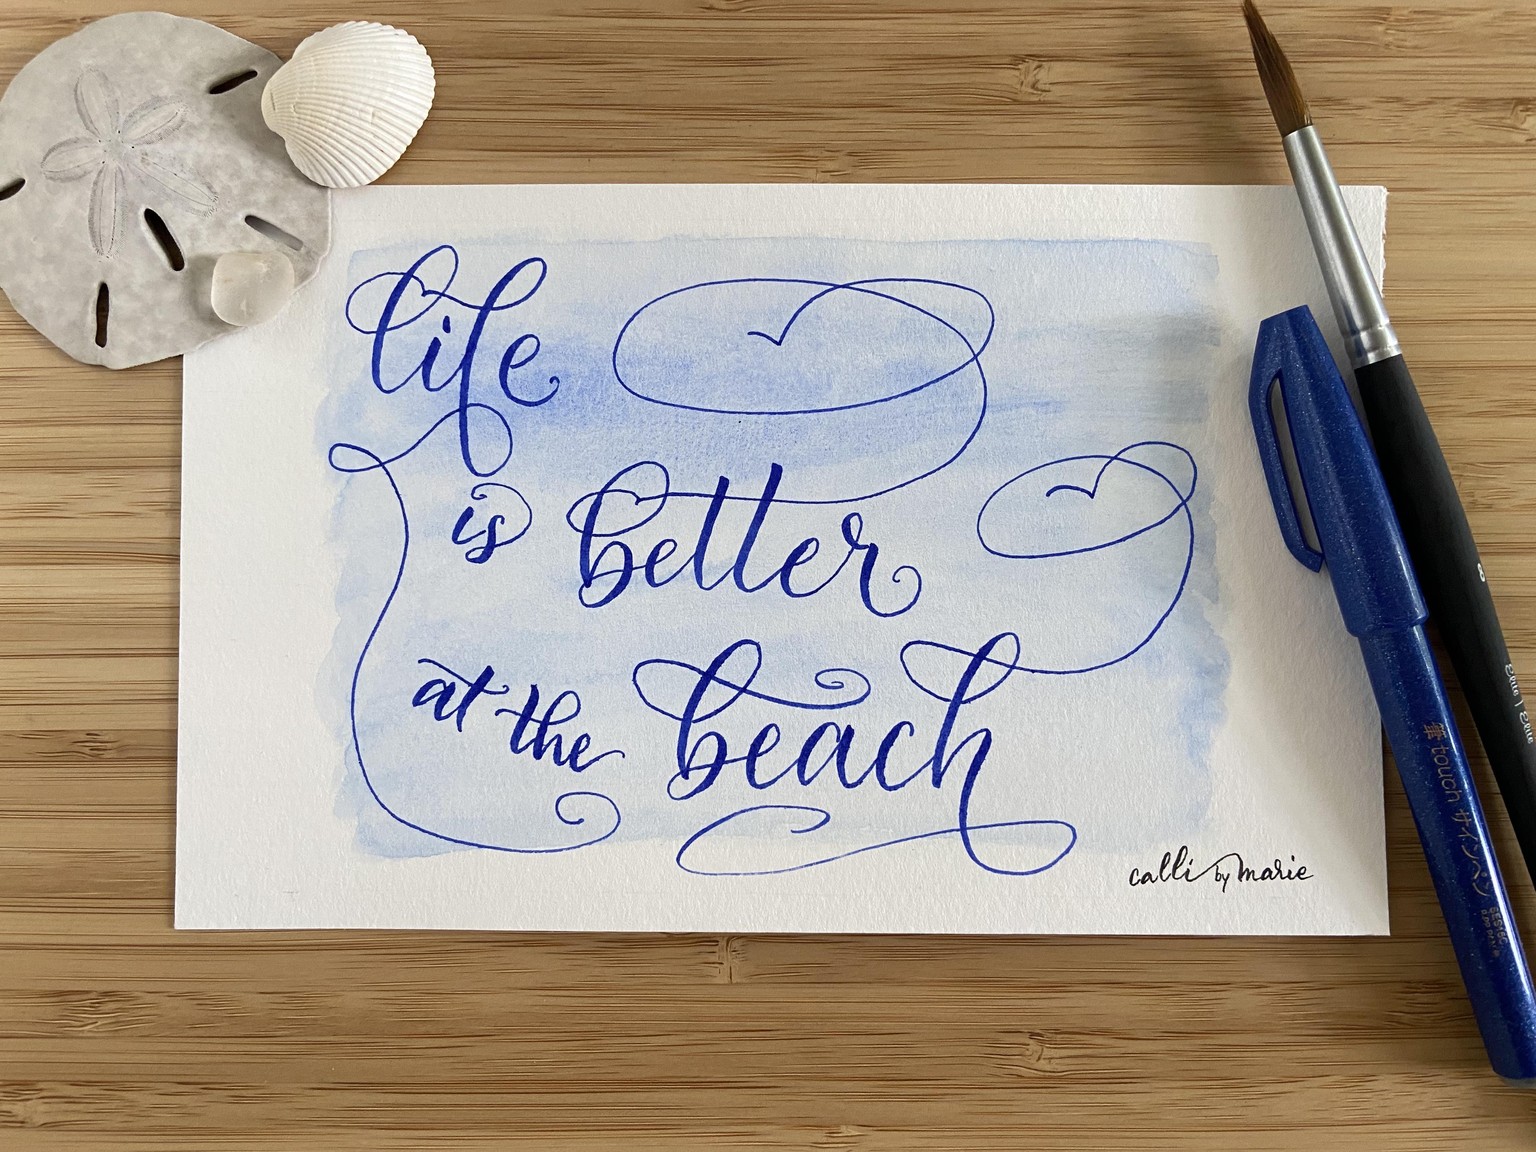 life
is better
at the beach
calli by marie
筆touch サインペン
8